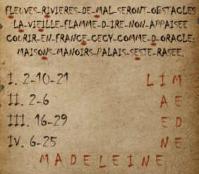 FLEUVES-RIVIERES-DE-MAL-SERONT-OBSTACLES
LA-VIEILLE-FLAMME-D-IRE-NON-APPAISEE
COURIR-EN-FRANCE-CECY-COMME-D-ORACLE-
MAISONS-MANOIRS-PALAIS-SESTE-RASEE
I. 2-10-21 L I M
II. 2-6 A E
III. 16-29 E D
IV. 6-25 N E
MADELEINE